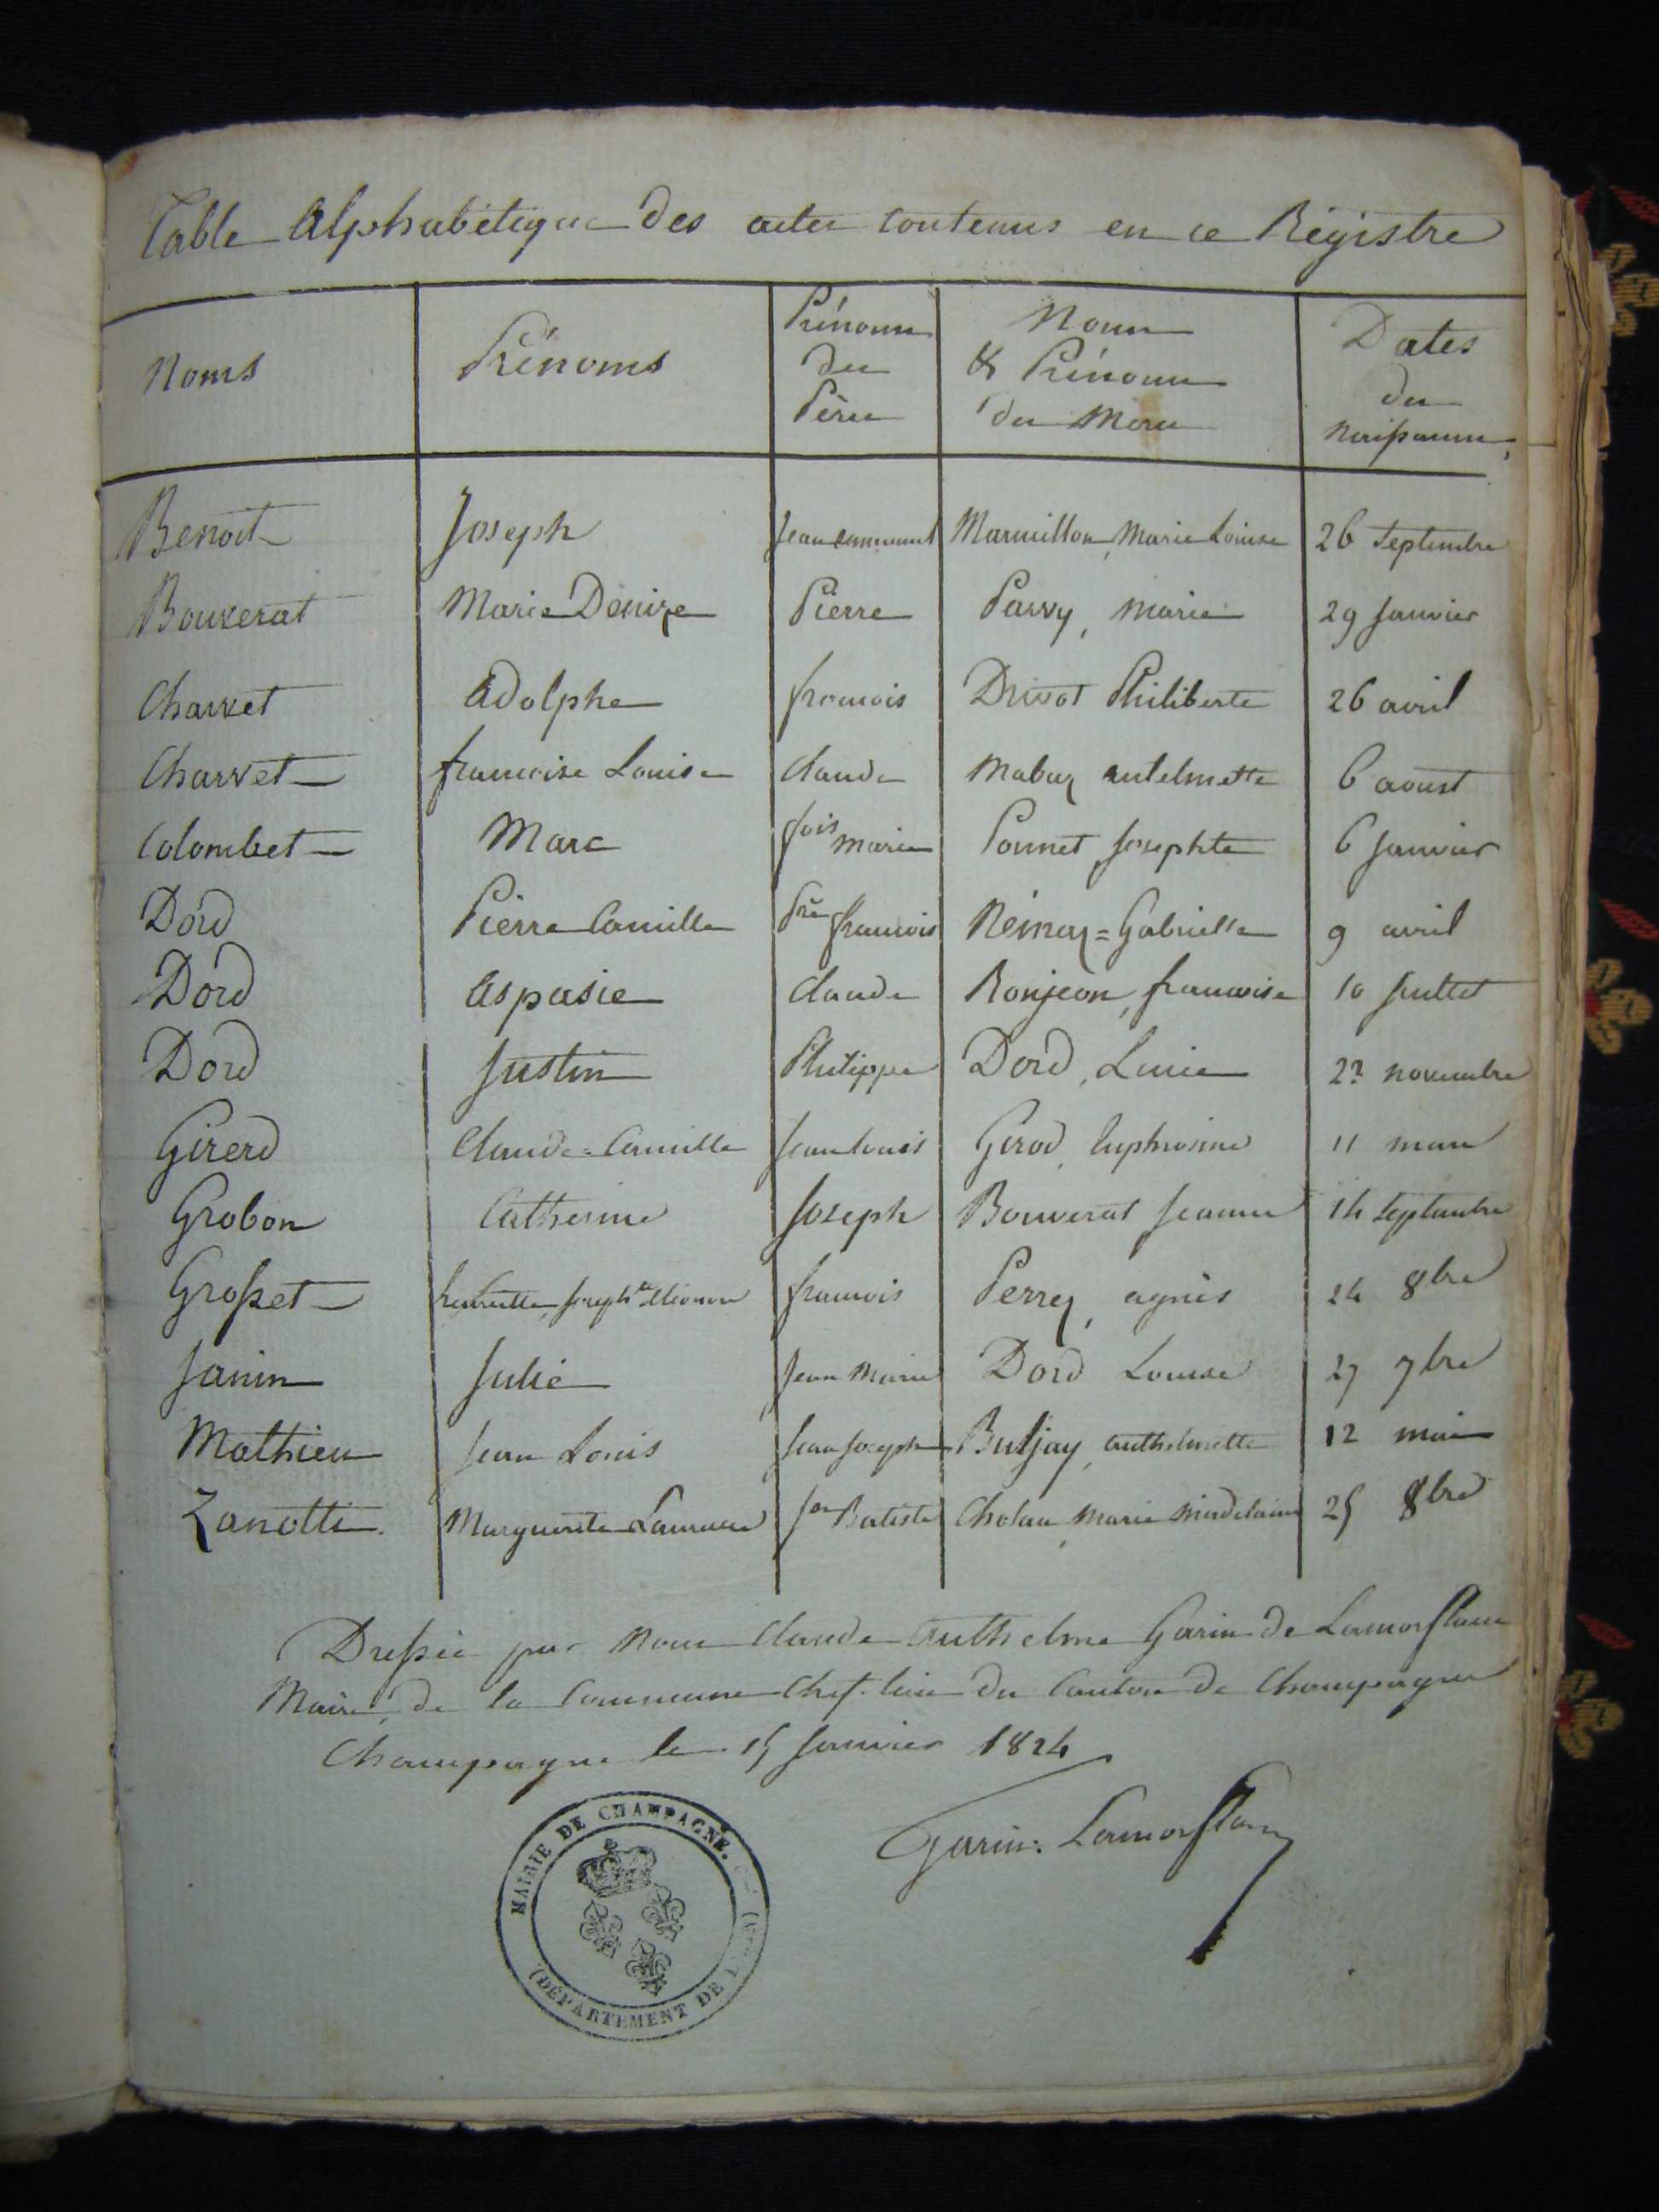 Table Alphabétique des actes contenus en ce Régistre
Noms Prénoms Prénoms des Pères Noms & Prénoms des Mères Dates des Naissances
Benoit Joseph Jean Marmillon, Marie Louise 26 Septembre
Bouverat Marie Denize Pierre Parvy, Marie 29 Janvier
Charvet Adolphe françois Drivot Philiberte 26 avril
Charvet françoise Louise Claude antelmette 6 aoust
Colombet Marc fois Marie Ponnet Josephte 6 Janvier
Dord Pierre Camille Pre françois Gabrielle 9 avril
Dord Aspasie Claude Ronjeon, françoise 10 Juillet
Dord Justin Philippe Dord, Lucie 22 novembre
Girerd Claude=Camille Jean Louis Girod, Euphrosine 11 mars
Grobon Catherine Joseph Bouverat Jeanne 14 Septembre
Grosset Josephte françois Perrey, agnès 24 8bre
Janin Julie Jean Marie Dord Louise 27 7bre
Mathieu Jean Louis Jean Joseph Butjay, anthelmette 12 mai
Zanotti Marguerite Jean Batiste Marie Madelaine 25 8bre
Dressée par Nous Claude Anthelme Garin de Lamorflan
Maire, de la Commune Chef-lieu du Canton de Champagne
Champagne le 15 Janvier 1824
Garin. Lamorflan
MAIRIE DE CHAMPAGNE.
(DÉPARTEMENT DE